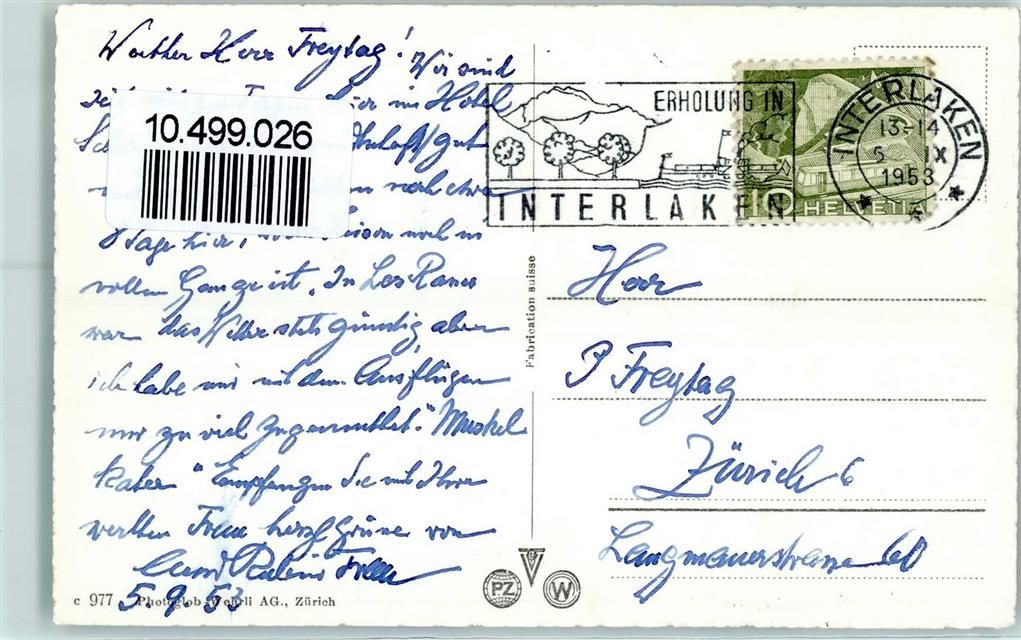 Werther Herr Freytag! Wir sind
hier im Hotel
gut
noch etwa
8 Tage hier, Saison noch in
vollem Gange ist. In Les Rases
war das Wetter stets günstig aber
ich habe mir mit den Ausflügen
nur zu viel zugemuthet. "Muskel
kater" Empfangen Sie mit Ihrer
werthen Frau herzl Grüsse von
Frau
5.9.53
10.499.026
ERHOLUNG IN
INTERLAKEN
INTERLAKEN
13-14
5 IX
1953
10 HELVETIA
Fabrication suisse
Herr
P Freytag
Zürich 6
Langmauerstrasse 60
PZ
W
c 977 Photoglob-Wehrli AG., Zürich